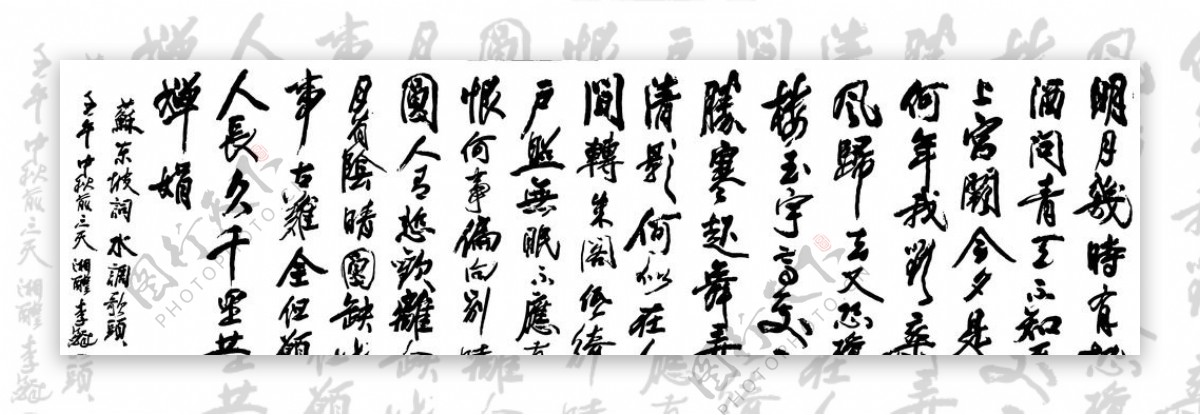 明月幾時有把
酒問青天不知天
上宮闕今夕是
何年我欲乘
風歸去又恐瓊
樓玉宇高處不
勝寒起舞弄
清影何似在人
間轉朱閣低綺
戶照無眠不應有
恨何事偏向別時
圓人有悲歡離合
月有陰晴圓缺此
事古難全但願
人長久千里共
嬋娟
蘇東坡詞水調歌頭
壬午中秋前三天湘醴李